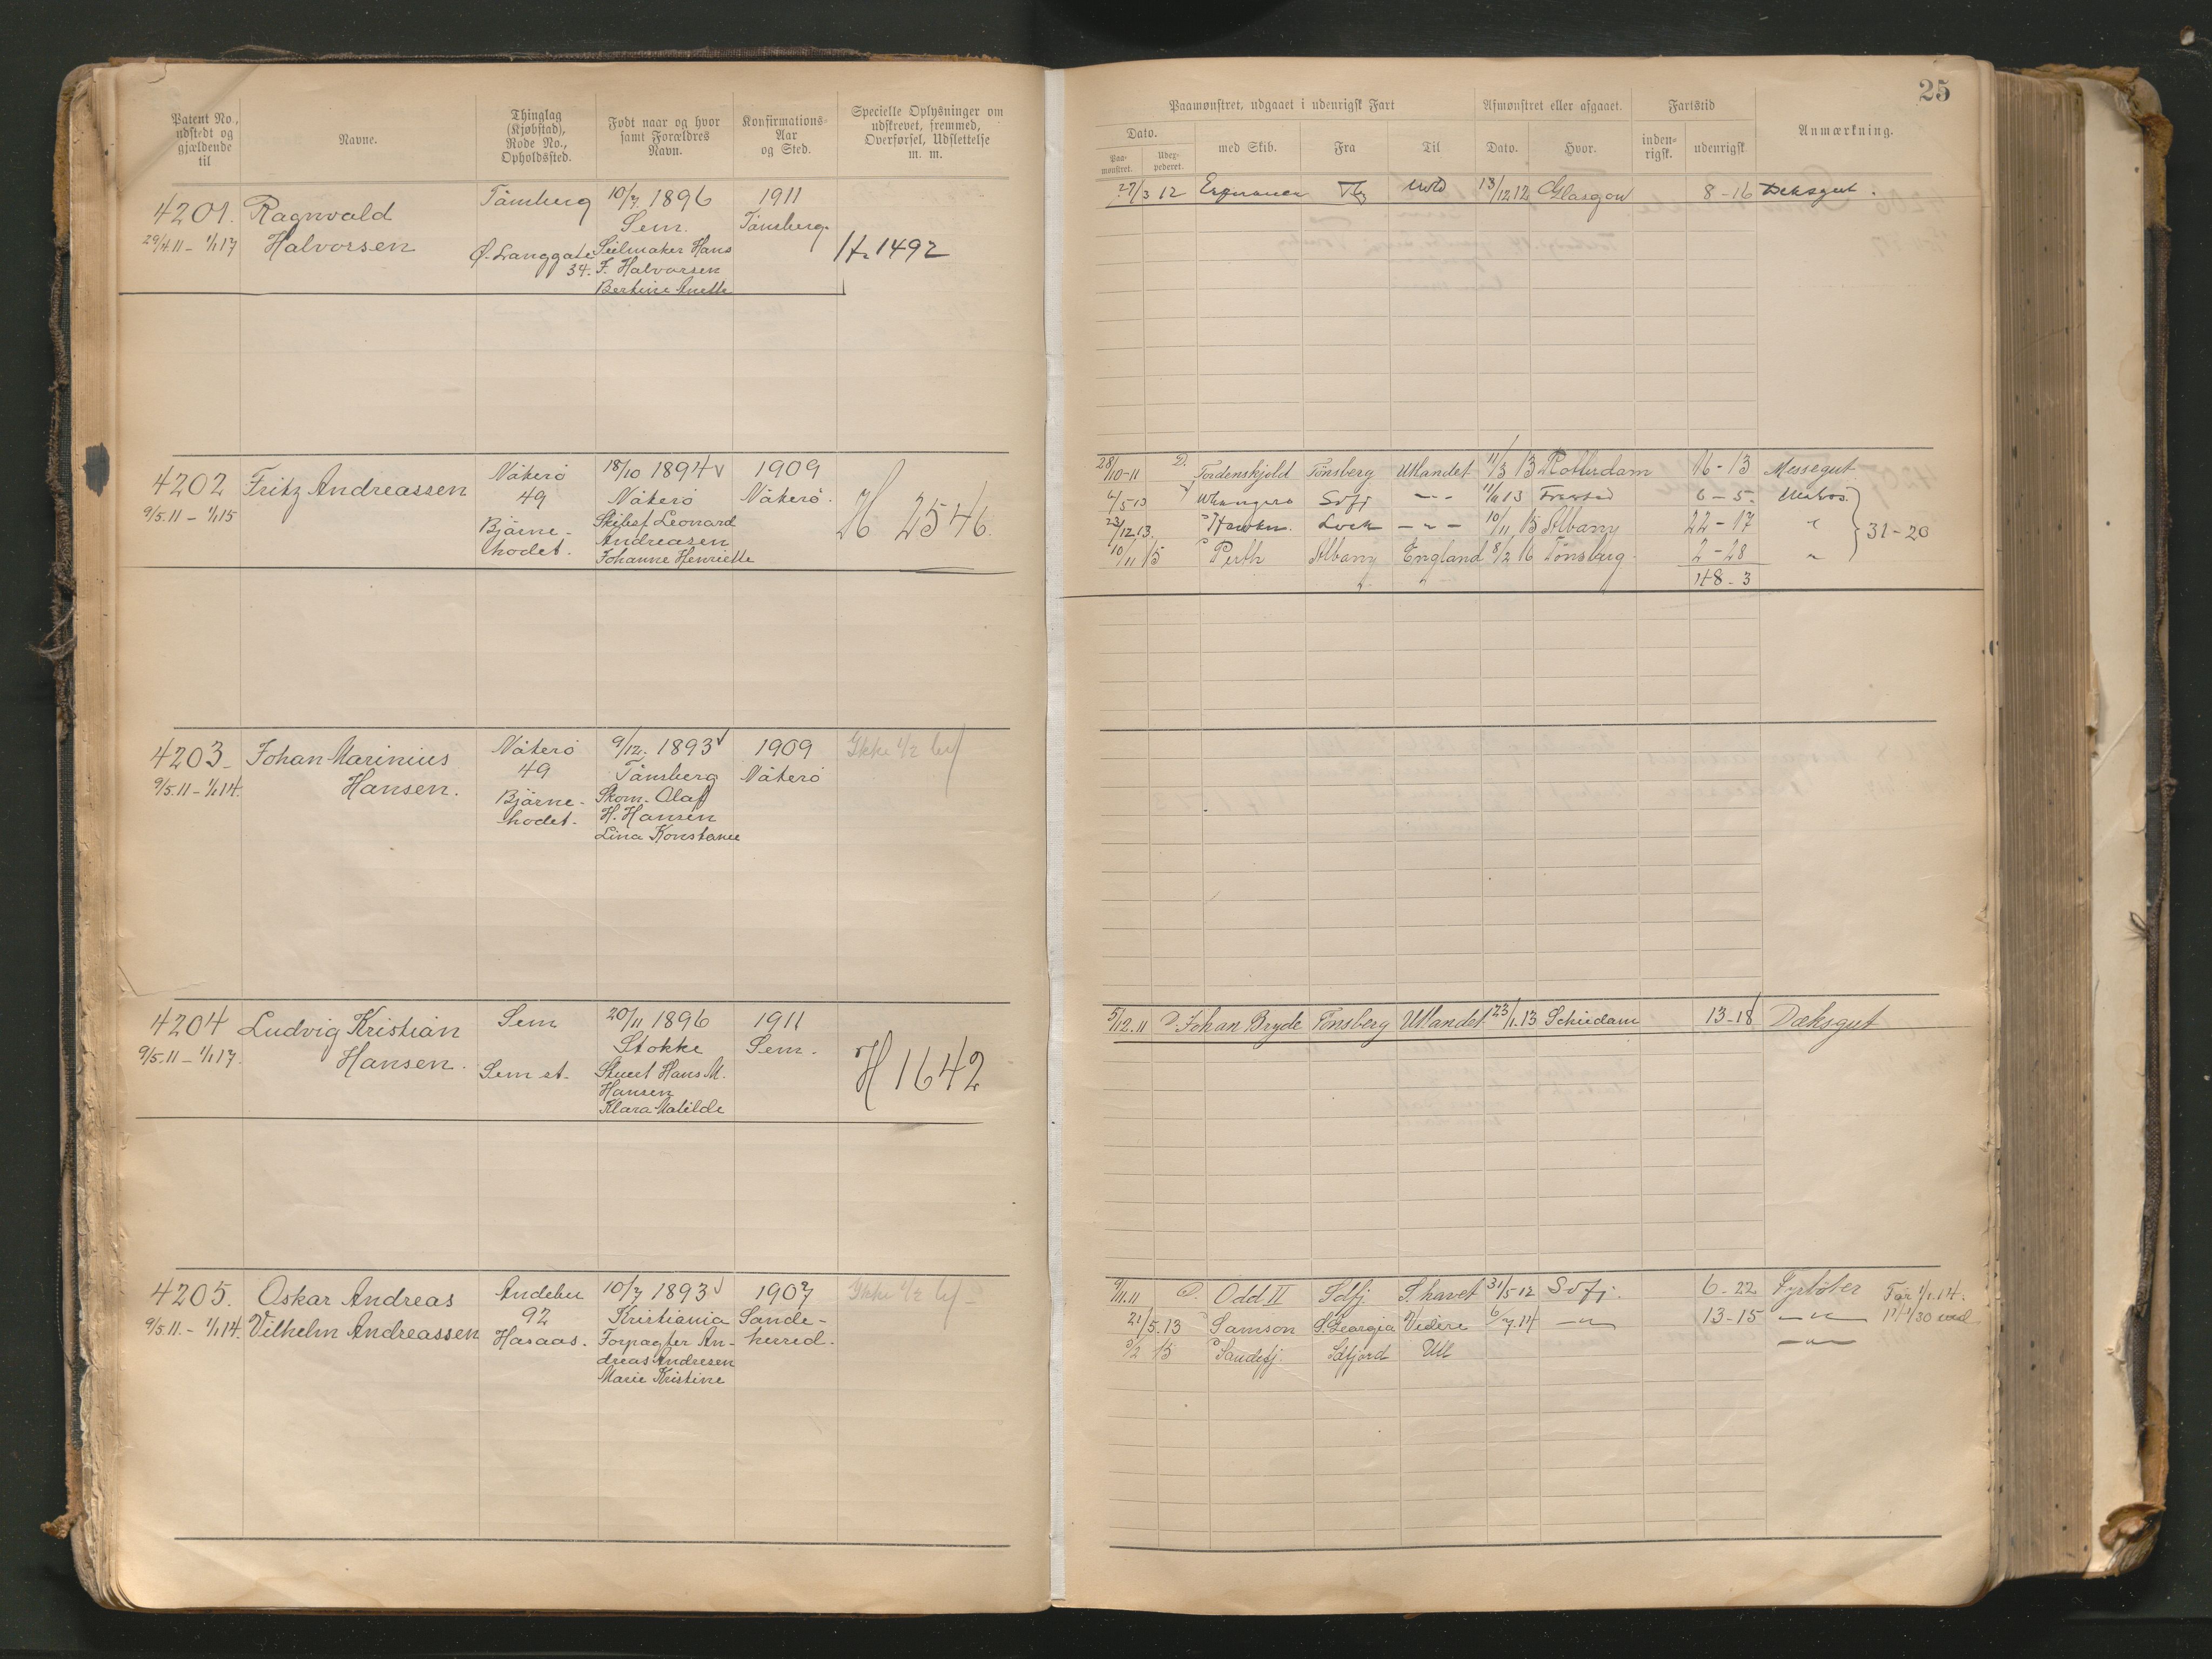 25
Patent No., udstedt og gjældende til
Navne.
Thinglag (Kjøbstad), Rode No., Opholdssted.
Født naar og hvor samt Forældres Navn.
Konfirmations-Aar og Sted.
Specielle Oplysninger om udskrevet, fremmed, Overførsel, Udslettelse m. m.
Paamønstret, udgaaet i udenrigsk Fart
Afmønstret eller afgaaet.
Fartstid
Anmærkning.
Dato.
Paa-mønstret.
Udex-pederet.
med Skib.
Fra
Til
Dato.
Hvor.
inden-rigsk.
udenrigsk
4201. Ragnvald
Halvorsen
29/4 11 - 1/1 17
Tönsberg
Ø. Langgate
34.
10/7. 1896
Sem.
Seilmaker Hans
F. Halvorsen
Bertine Anette
1911
Tönsberg.
H. 1492
27/3 12 Tbg Utld 13/12 12 Glasgow 8-16 Deksgut.
4202 Fritz Andreassen
9/5. 11 - 1/1 15
Nöterö
49
Bjärne-
hodet.
18/10 1894
Nöterö
Skibsf. Leonard
Andreasen
Johanne Henriette
1909
Nöterö.
H 2546.
28/10-11 D. Tordenskjold Tönsberg Utlandet 11/3 13 Rotterdam 16-13 Messegut
6/5 13 Sdfj - " - 11/11 13 6-5. Matros.
23/12 13. - " - 10/11 15 Albany 22-17 "
31-20
10/11 15 Perth Albany England 8/2 16 Tönsberg. 2-28 "
48-3
4203 Johan Marinius
Hansen.
9/5. 11 - 1/1 14.
Nöterö
49
Bjärne-
hodet.
9/12. 1893
Tönsberg
Skom. Olaf
H. Hansen
Lina Konstance
1909
Nöterö
Ikke 1/2 bef
4204 Ludvig Kristian
Hansen.
9/5. 11 - 1/1 17.
Sem
Sem st.
20/11 1896
Stokke
Stuert Hans M.
Hansen
Klara Matilde
1911
Sem.
H 1642
5/12. 11 D Johan Bryde Tönsberg Utlandet 23/1. 13 Schiedam 13-18 Dæksgut
4205. Oskar Andreas
Vilhelm Andreassen
9/5. 11. - 1/1 14.
Andebu
92
Hasaas.
10/7 1893
Kristiania
Forpagter An-
dreas Andresen
Marie Kristine
1907
Sande-
herred.
Ikke 1/2 bef
9/11. 11 D. Odd II Sdfj. S. havet 31/5 12 Sdfj. 6-22 Fyrböter Før 1/1. 14.
21/5. 13 Samson S. Georgia Videre 6/7. 14 - " - 13-15 - " -
15 Sandefj. Sdfjord Utl - " -